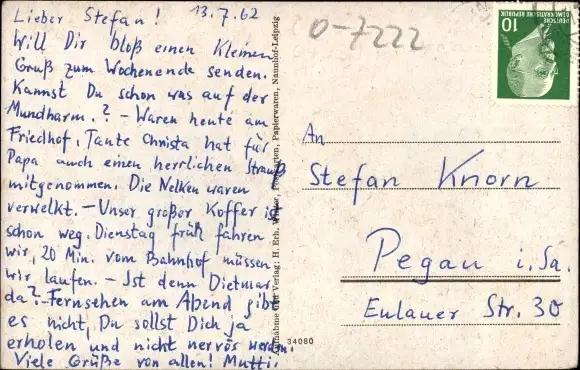 Lieber Stefan! 13.7.62
Will Dir bloß einen kleinen
Gruß zum Wochenende senden.
Kannst Du schon was auf der
Mundharm.? – Waren heute am
Friedhof, Tante Christa hat für
Papa auch einen herrlichen Strauß
mitgenommen. Die Nelken waren
verwelkt. – Unser großer Koffer ist
schon weg. Dienstag früh fahren
wir, 20 Min. vom Bahnhof müssen
wir laufen. – Ist denn Dietmar
da? – Fernsehen am Abend gibt
es nicht, Du sollst Dich ja
erholen und nicht nervös werden.
Viele Grüße von allen! Mutti.
Aufnahme und Verlag: H. Erh. Postkarten, Papierwaren, Naunhof-Leipzig
34080
O-7222
10
DEUTSCHE
DEMOKRATISCHE REPUBLIK
An
Stefan Knorn
Pegau i. Sa.
Eulauer Str. 30